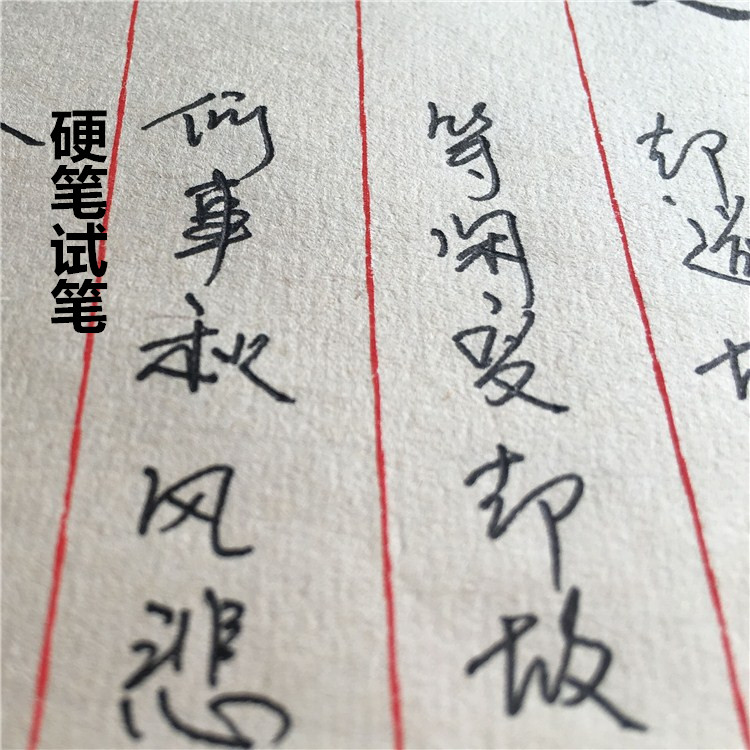 硬笔试笔
何事秋风悲
等闲变却故
却道故